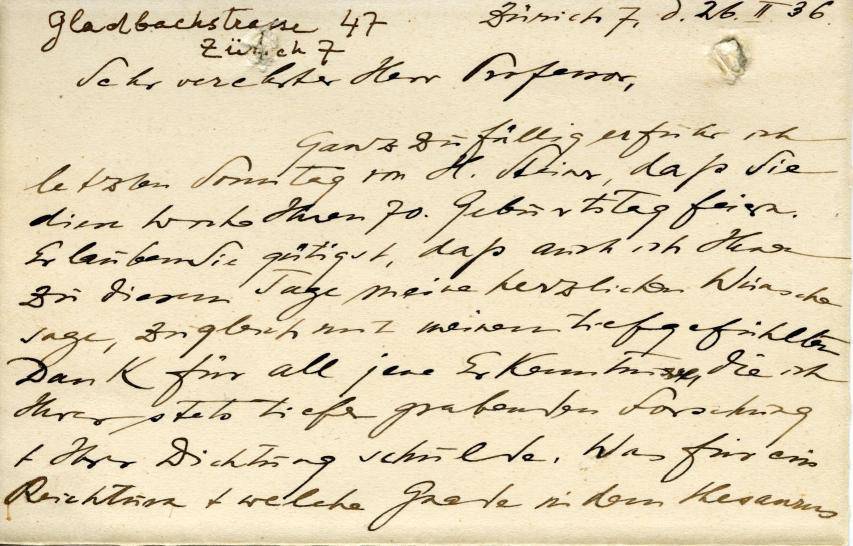 Gladbachstrasse 47
Zürich 7
Zürich 7, d. 26. II 36.
Sehr verehrter Herr Professor,
Ganz zufällig erfuhr ich
letzten Sonntag von H. Steiner, daß Sie
diese Woche Ihren 70. Geburtstag feiern.
Erlauben Sie gütigst, daß auch ich Ihnen
zu diesem Tage meine herzlichen Wünsche
sage, zugleich mit meinem tiefgefühlten
Dank für all jene Erkenntnisse, die ich
Ihrer stets tiefer grabenden Forschung
+ Ihrer Dichtung schulde. Was für ein
Reichtum + welche Gnade in dem Thesaurus